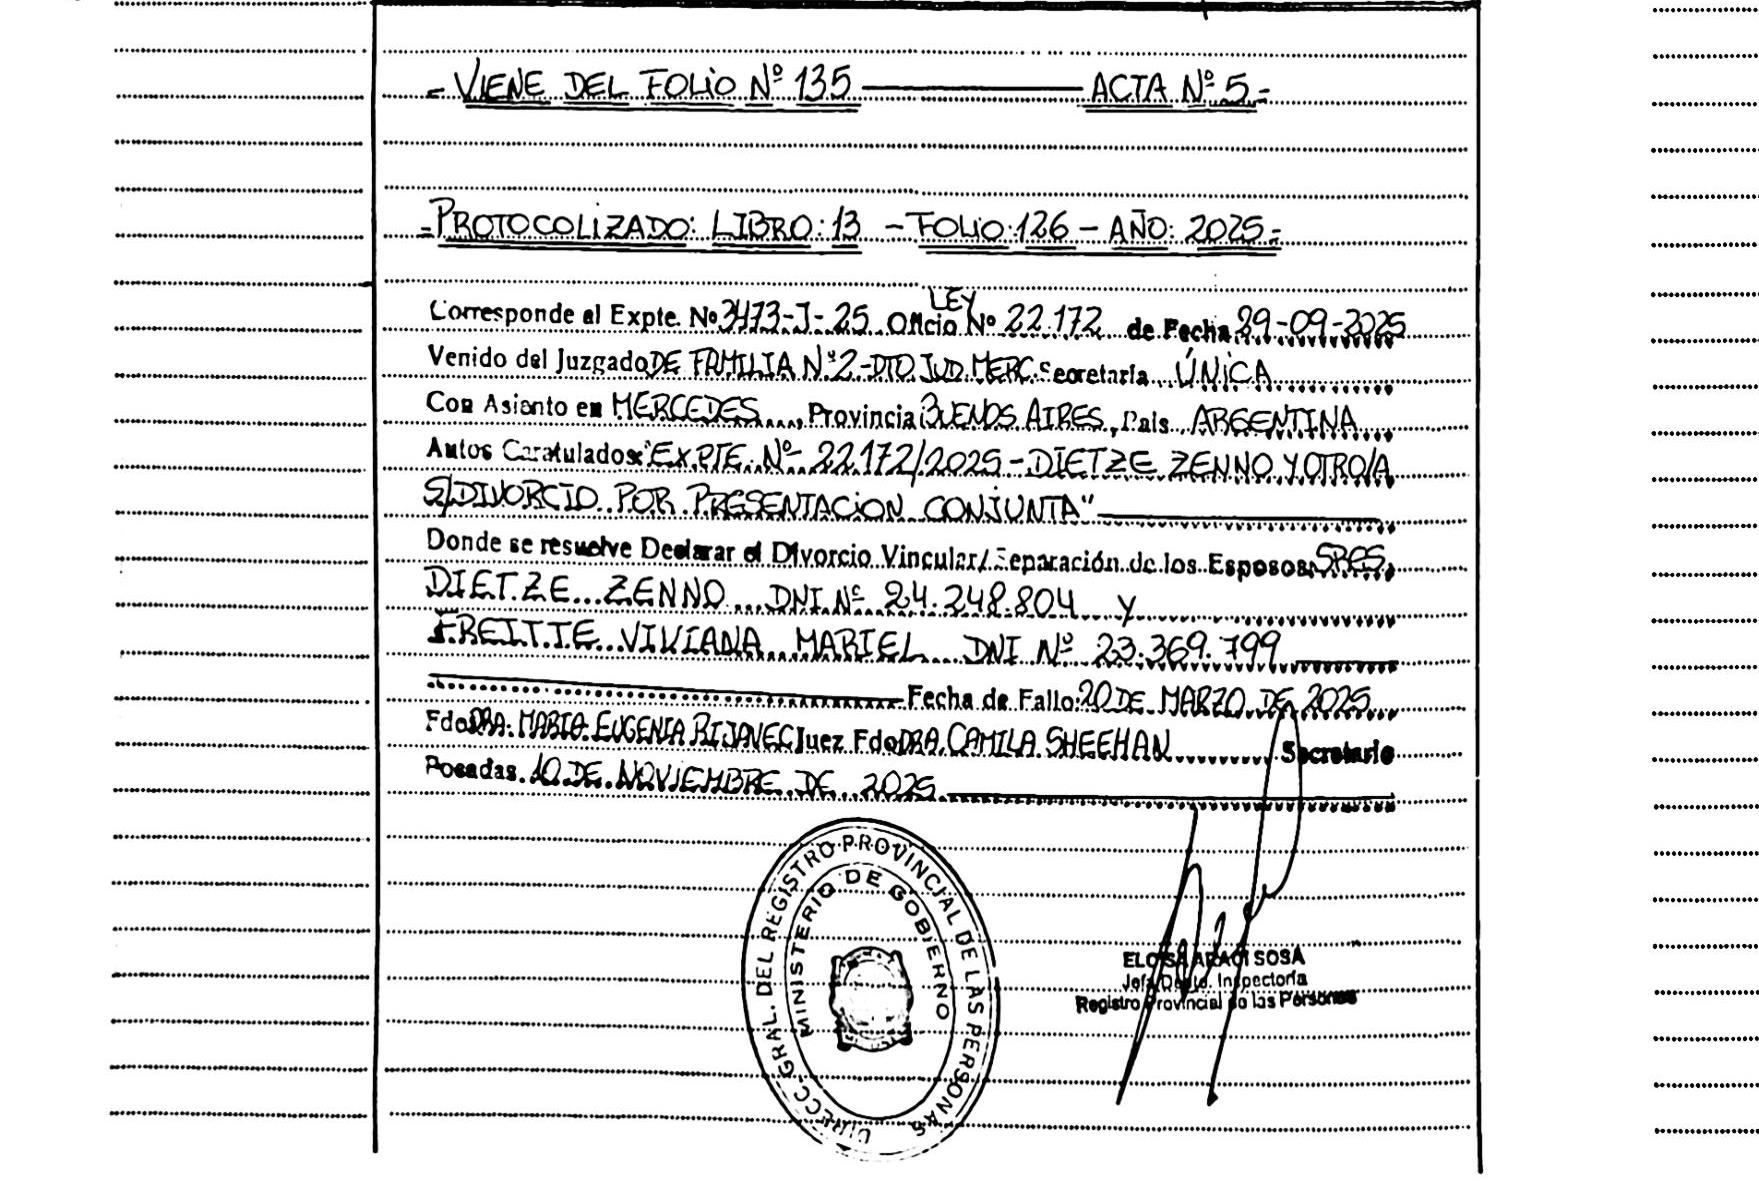 - VIENE DEL FOLIO Nº 135 ———— ACTA Nº 5 -
- PROTOCOLIZADO: LIBRO: 13 - FOLIO: 126 - AÑO: 2025 -
LEY
Corresponde al Expte. Nº 3473-J-25 Oficio Nº 22.172 de Fecha 29-09-2025
Venido del Juzgado DE FAMILIA Nº 2-DTO JUD. MERC. Secretaría ÚNICA
Con Asiento en MERCEDES, Provincia BUENOS AIRES, País ARGENTINA
Autos Caratulados: "EXPTE. Nº 22.172/2025 - DIETZE ZENNO Y OTRO/A
S/DIVORCIO POR PRESENTACION CONJUNTA"
Donde se resuelve Declarar el Divorcio Vincular/Separación de los Esposos SRES.
DIETZE ZENNO DNI Nº 24.248.804 Y
FREITTE VIVIANA MARIEL DNI Nº 23.369.799
Fecha de Fallo: 20 DE MARZO DE 2025
Fdo DRA. MARIA EUGENIA RIJAVEC Juez Fdo DRA. CAMILA SHEEHAN Secretario
Posadas. 10 DE NOVIEMBRE DE 2025
DIRECC. GRAL. DEL REGISTRO PROVINCIAL DE LAS PERSONAS
MINISTERIO DE GOBIERNO
ELOISA ARACI SOSA
Jefa Depto. Inspectoría
Registro Provincial de las Personas